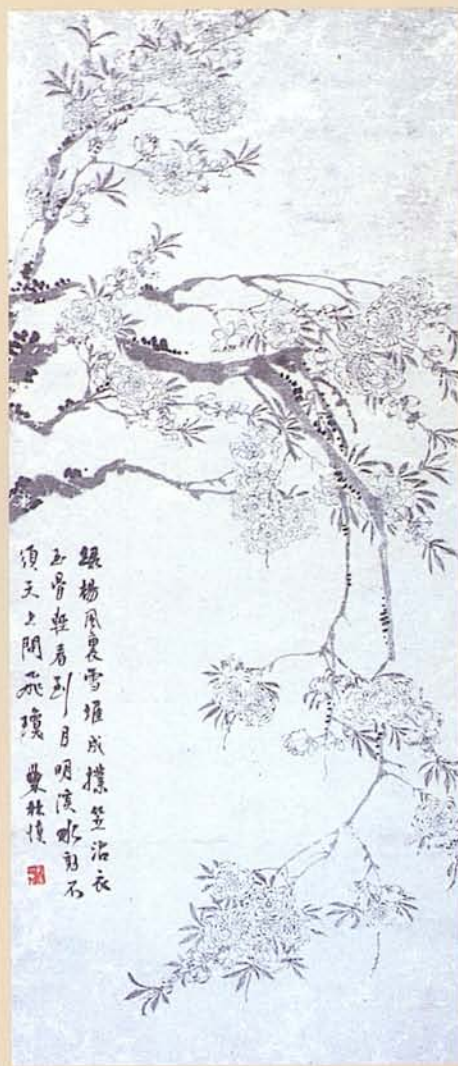 綠楊風裏雪堆成撲笠沾衣
玉骨輕看到月明溪水不
須天上問飛瓊